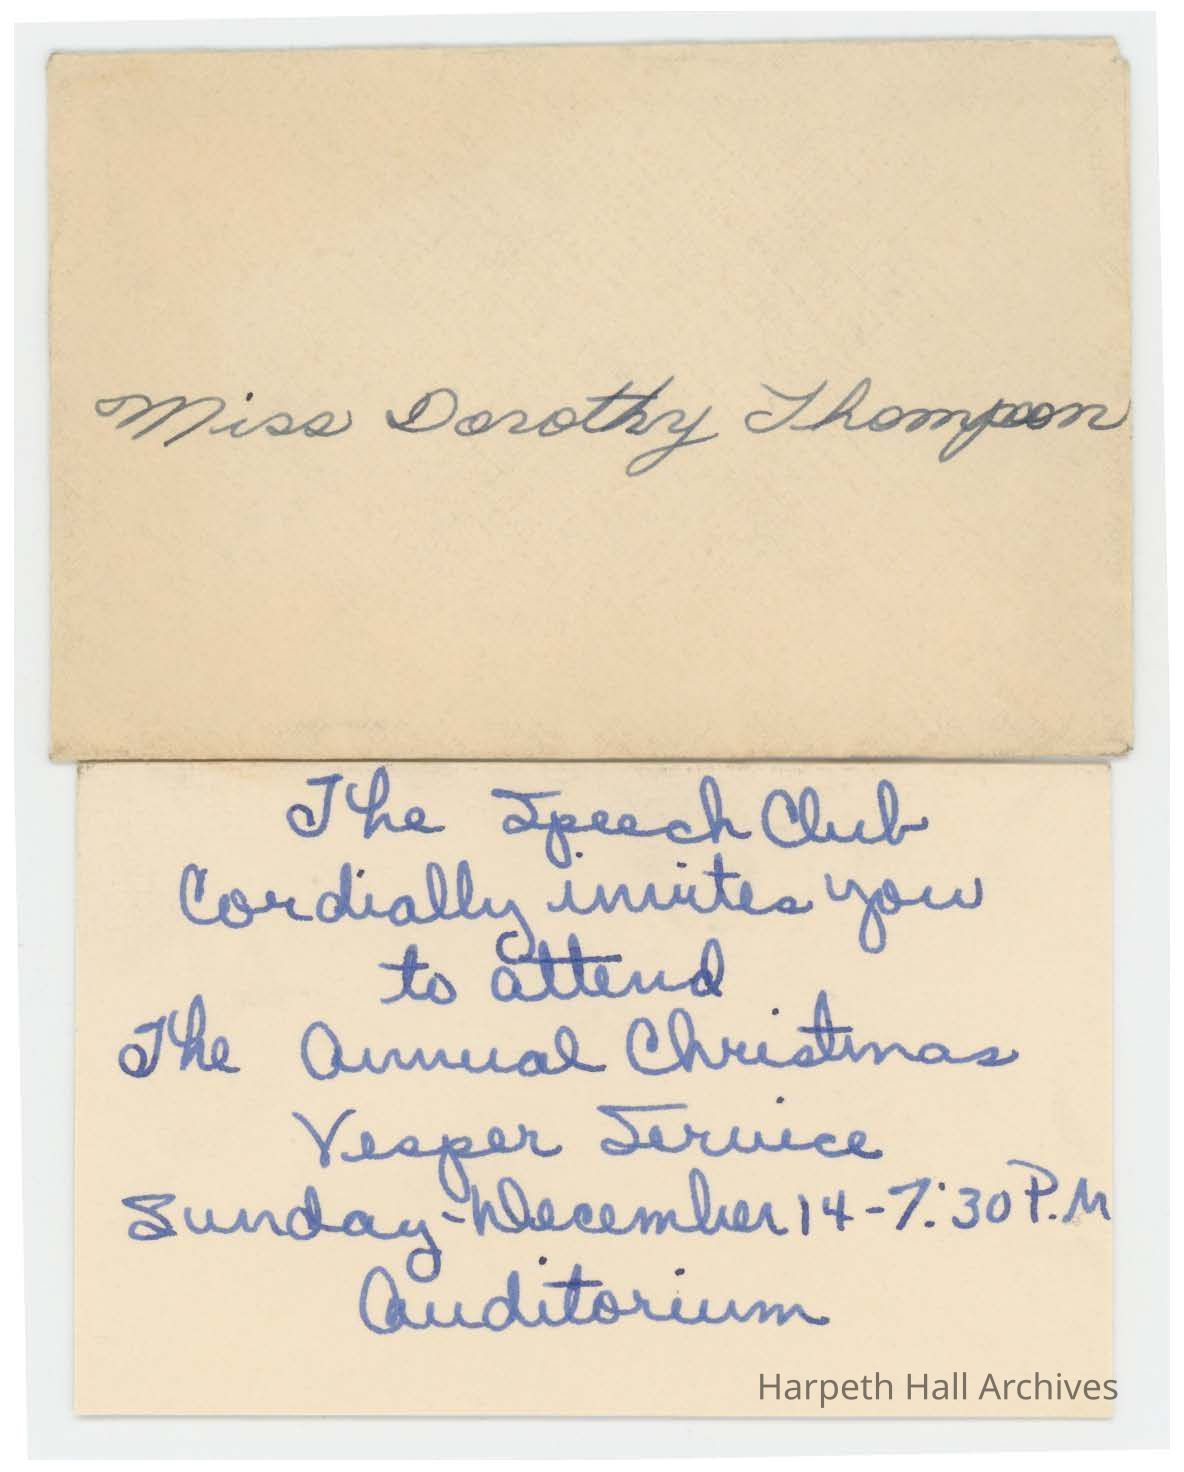 Miss Dorothy Thompson
The Speech Club
Cordially invites you
to attend
The Annual Christmas
Vesper Service
Sunday-December 14-7:30 P.M
Auditorium
Harpeth Hall Archives